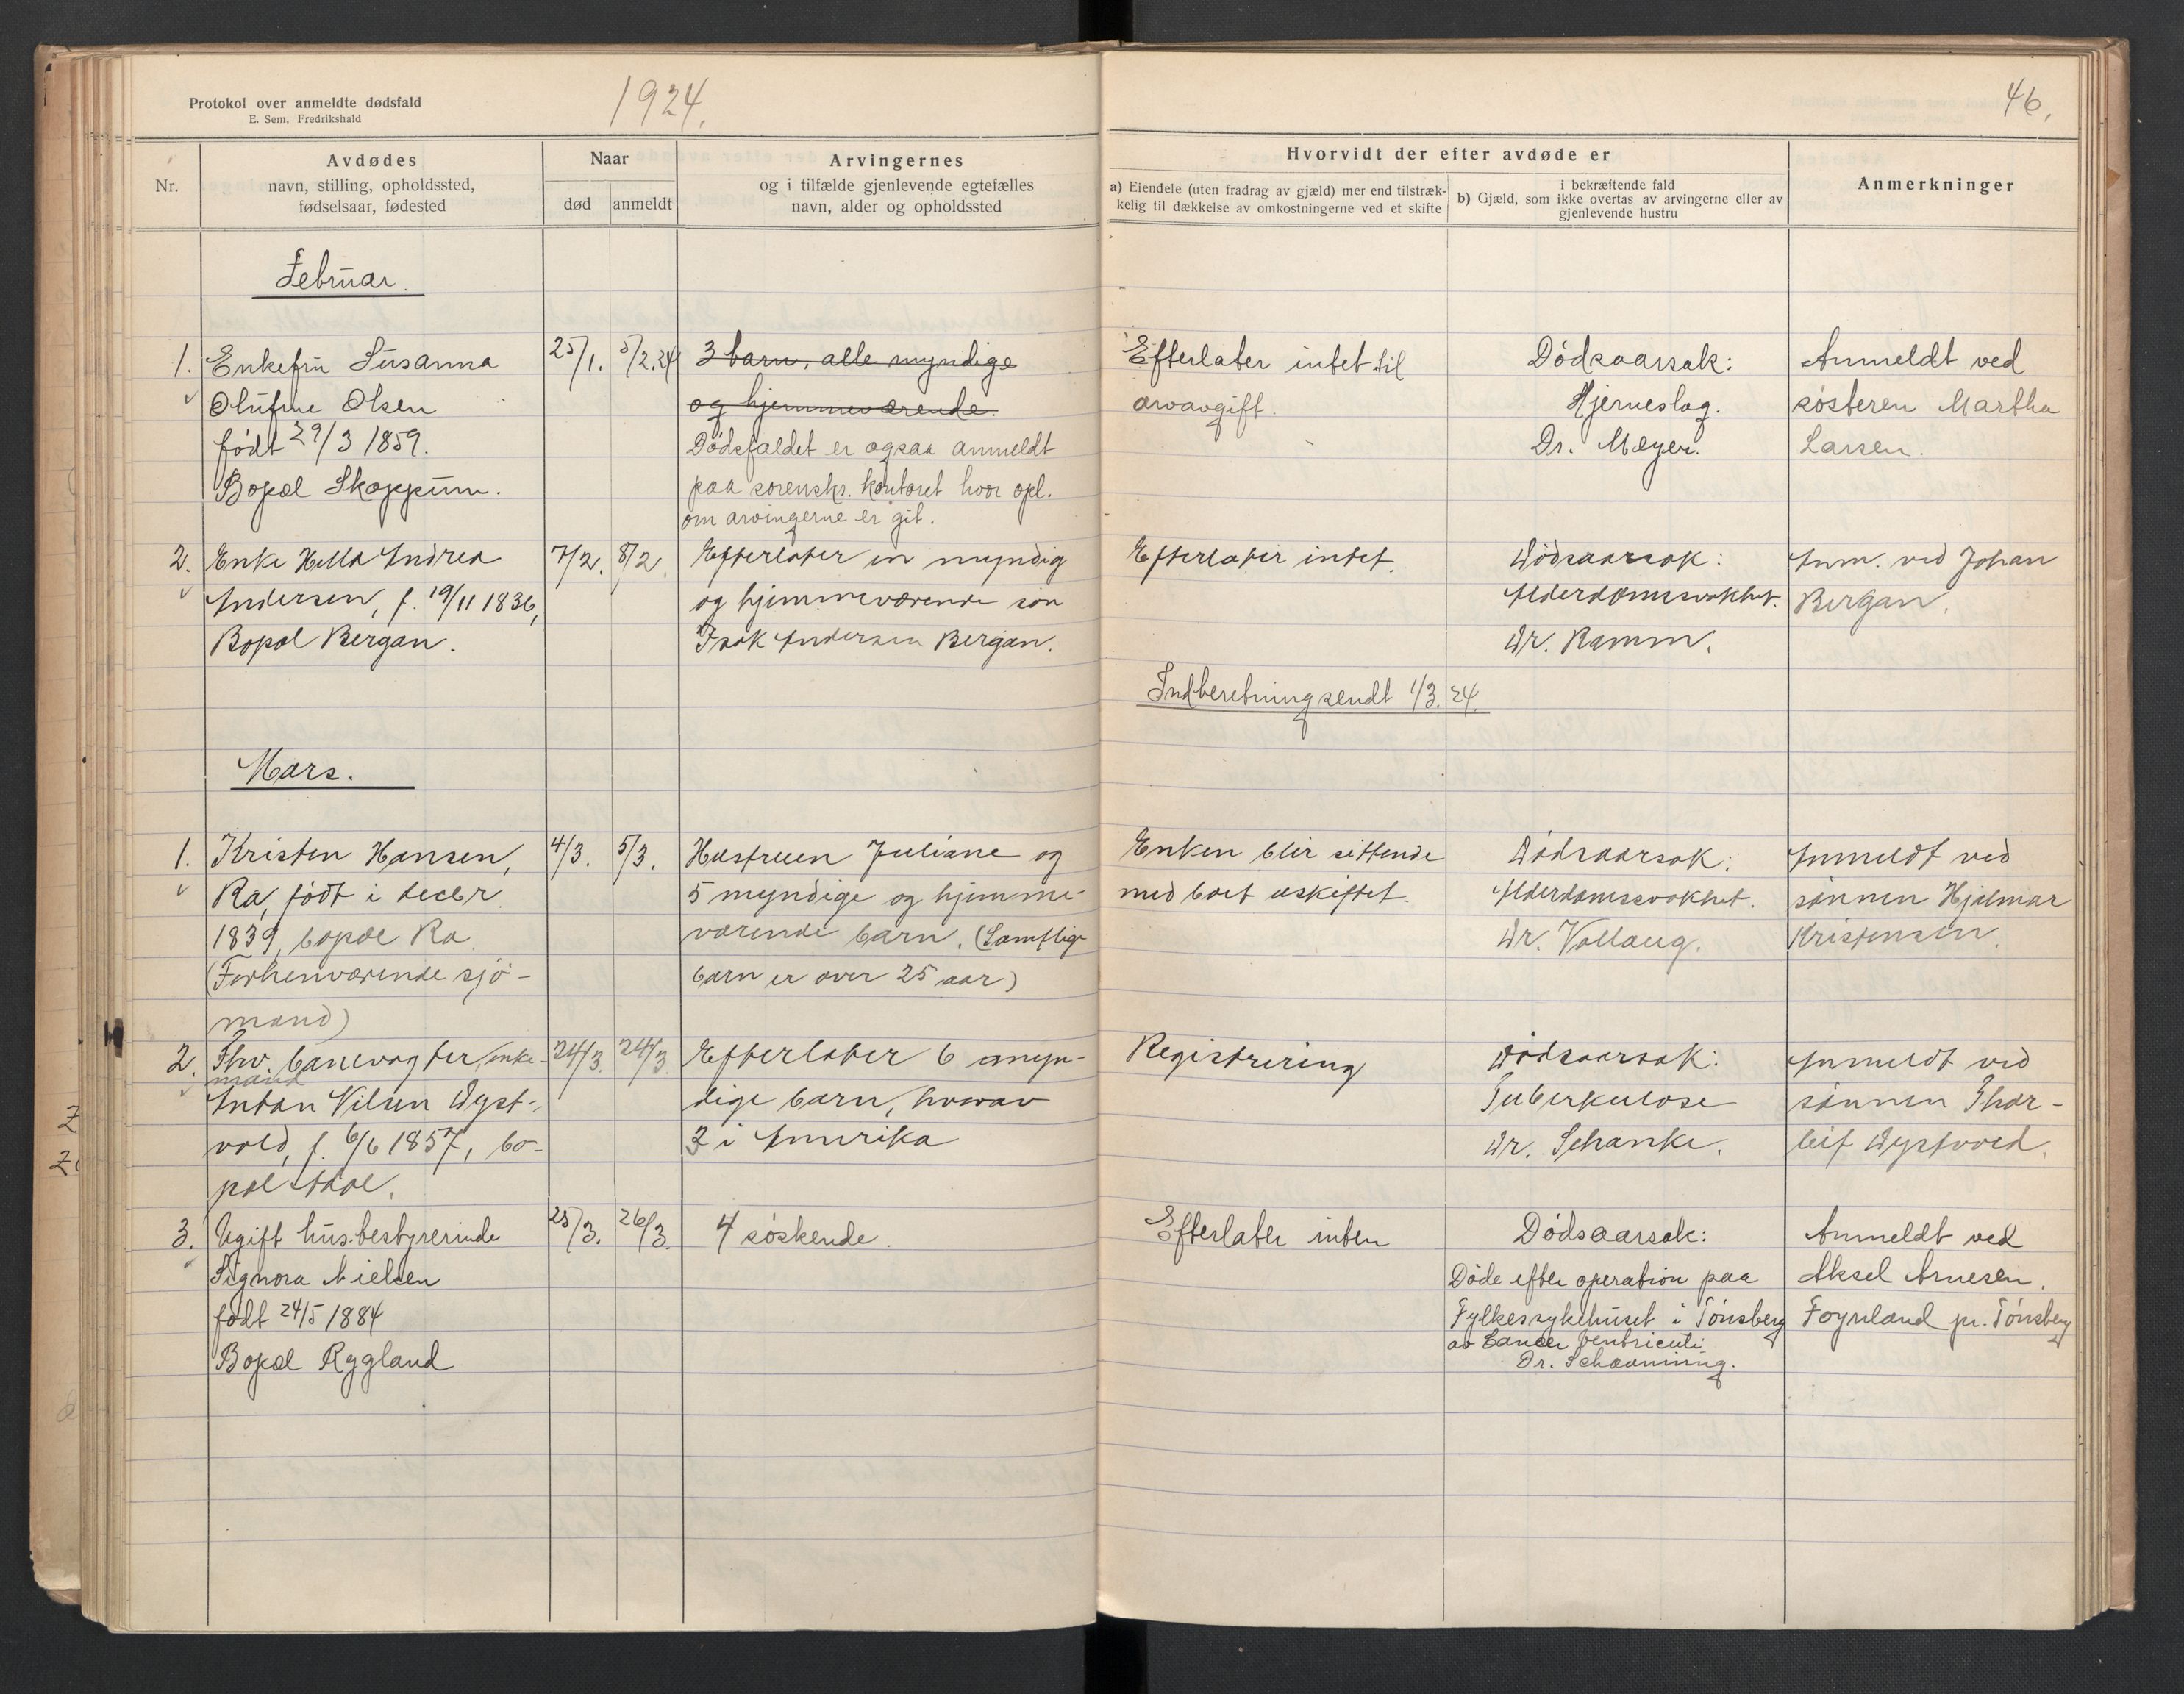 Protokol over anmeldte dødsfald
E. Sem, Fredrikshald
1924.
46.
Nr.
Avdødes
navn, stilling, opholdssted,
fødselsaar, fødested
Naar
død
anmeldt
Arvingernes
og i tilfælde gjenlevende egtefælles
navn, alder og opholdssted
Hvorvidt der efter avdøde er
a) Eiendele (uten fradrag av gjæld) mer end tilstræk-
kelig til dækkelse av omkostningerne ved et skifte
i bekræftende fald
b) Gjæld, som ikke overtas av arvingerne eller av
gjenlevende hustru
Anmerkninger
Februar.
1.
Enkefru Susanna
Olufine Olsen
født 29/3 1859.
Bopæl Skoppum.
25/1.
5/2.24
3 barn, alle myndige
og hjemmeværende.
Dødsfaldet er ogsaa anmeldt
paa sorenskr. kontoret hvor opl.
om arvingerne er git.
Efterlater intet til
arvavgift.
Dødsaarsak:
Hjerneslag.
Dr. Meyer.
Anmeldt ved
søsteren Martha
Larsen.
2.
Enke Hella Andrea
Andersen, f. 19/11 1836,
Bopæl Bergan.
7/2.
8/2
Efterlater en myndig
og hjemmeværende søn
Isak Andersen Bergan.
Efterlater intet.
Dødsaarsak:
Alderdomssvakhet.
Dr. Ramm.
Anm. ved Johan
Bergan.
Indberetning sendt 1/3.24.
Mars.
1.
Kristen Hansen,
Ra, født i decbr
1839, bopæl Ra.
(Forhenværende sjø-
mand)
4/3.
5/3.
Hustruen Juliane og
5 myndige og hjemme-
værende barn. (Samtlige
barn er over 25 aar)
Enken blir sittende
med boet uskiftet.
Dødsaarsak:
Alderdomssvakhet.
Dr. Vollaug.
Anmeldt ved
sønnen Hjalmar
Kristensen.
2.
Fhv. banevogter, enke-
mand
Anton Nilsen Dyst-
vold, f. 6/6 1857, bo-
pæl
24/3.
24/3.
Efterlater 6 myn-
dige barn, hvorav
3 i Amerika
Registrering
Dødsaarsak:
Tuberkulose
Dr. Schanke.
Anmeldt ved
sønnen Thor-
leif Dystvold.
3.
Ugift husbestyrerinde
Signora Nielsen
født 24/5 1884
Bopæl Rygland
25/3.
26/3.
4 søskende.
Efterlater inten
Dødsaarsak:
Døde efter operation paa
Fylkessykehuset i Tønsberg
av Cancer Ventriculi
Dr. Schavnning.
Anmeldt ved
Aksel Arnesen.
Foynland pr. Tønsberg